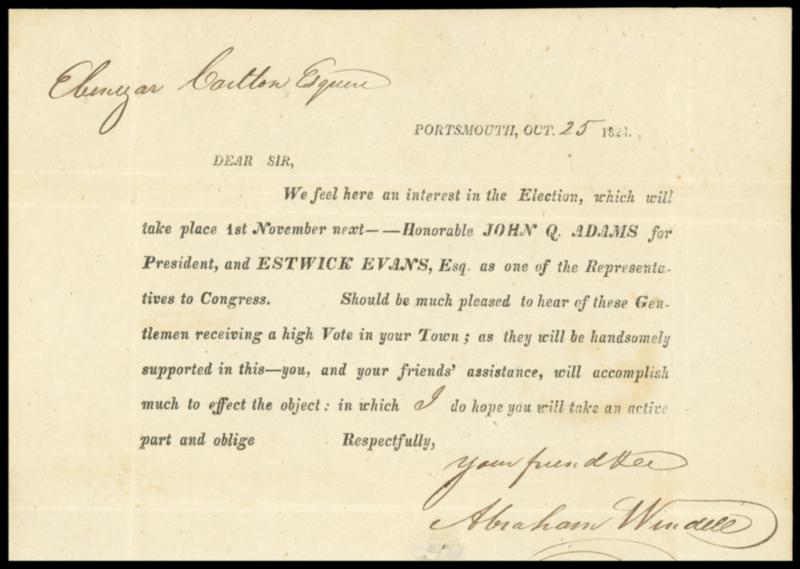 Ebenezar Carlton Esquire
PORTSMOUTH, OCT. 25 1824.
DEAR SIR,
We feel here an interest in the Election, which will
take place 1st November next——Honorable JOHN Q. ADAMS for
President, and ESTWICK EVANS, Esq. as one of the Representa-
tives to Congress. Should be much pleased to hear of these Gen-
tlemen receiving a high Vote in your Town; as they will be handsomely
supported in this—you, and your friends' assistance, will accomplish
much to effect the object: in which I do hope you will take an active
part and oblige Respectfully,
your friend
Abraham Wendell